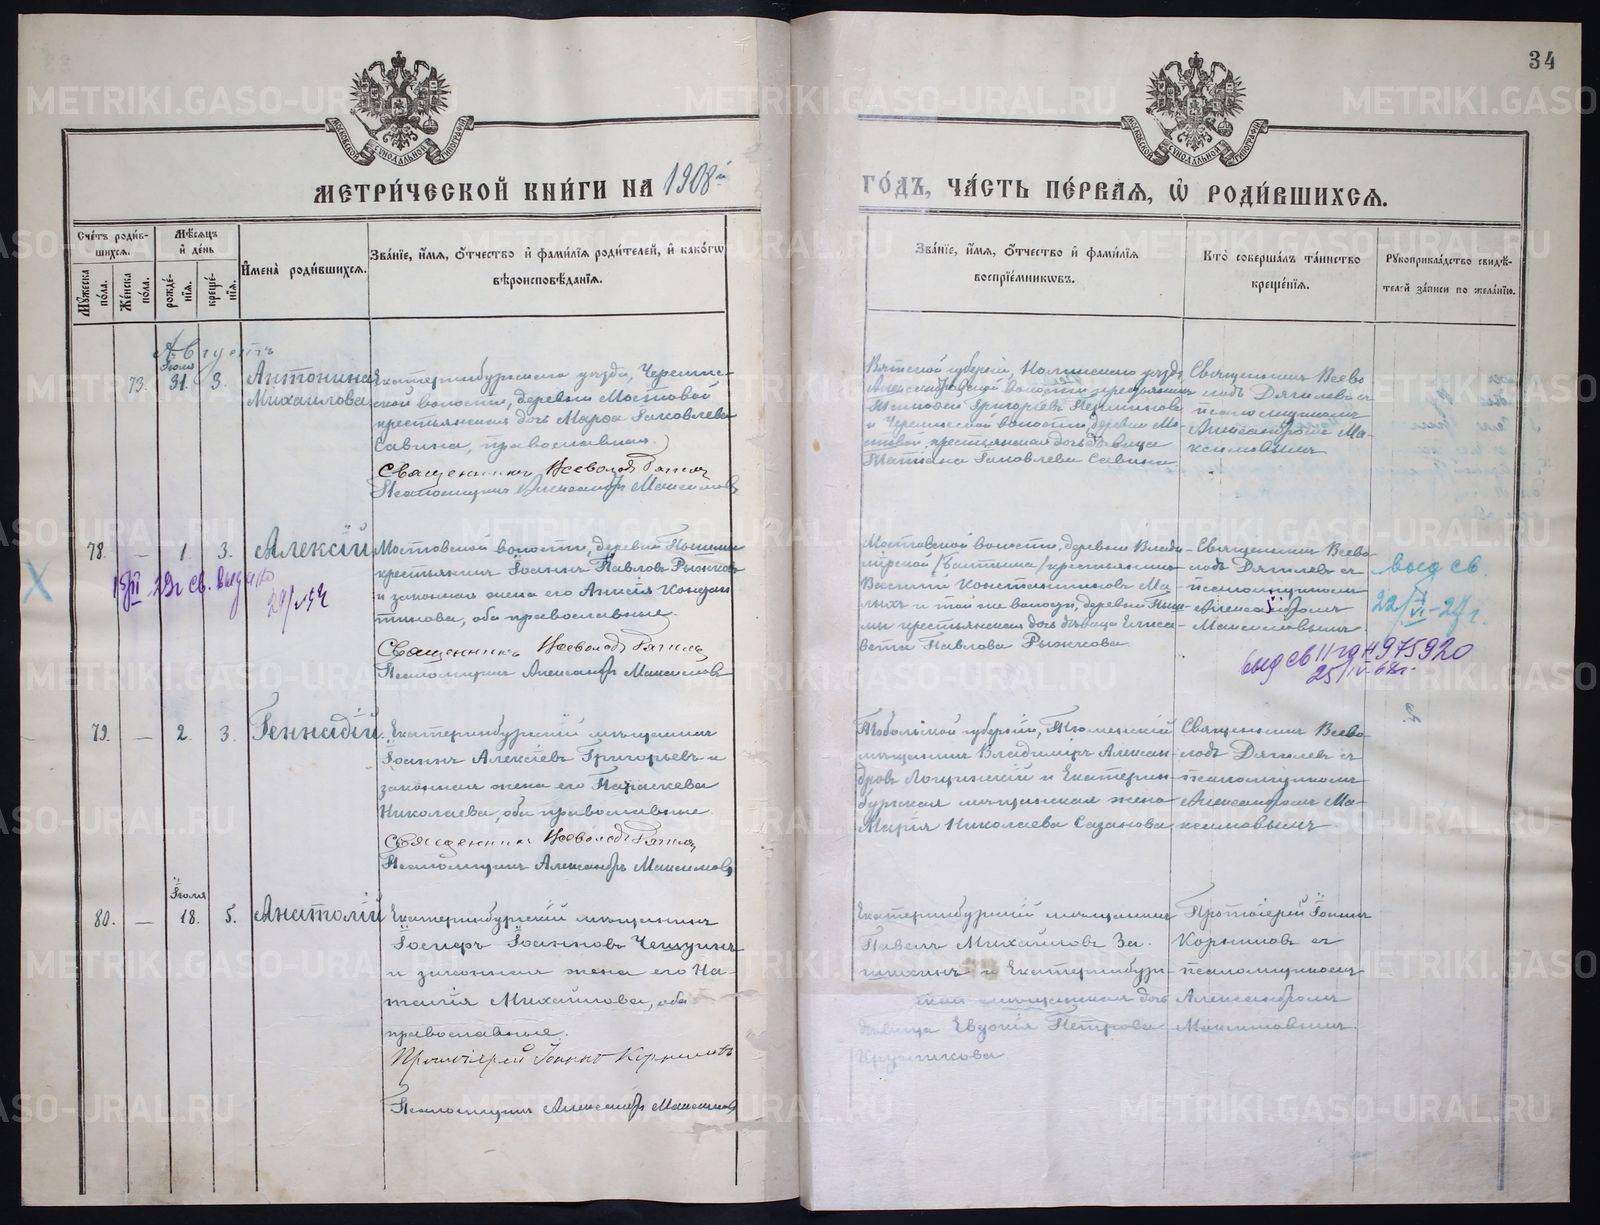 34
МОСКОВСКОЙ СѴНОДАЛЬНОЙ ТИПОГРАФІИ
МОСКОВСКОЙ СѴНОДАЛЬНОЙ ТИПОГРАФІИ
МЕТРИ́ЧЕСКОЙ КНИ́ГИ НА 1908й ГО́ДЪ, ЧА́СТЬ ПЕ́РВАЯ, Ѡ҆ РОДИ́ВШИХСЯ.
Сче́тъ роди́вшихся.
Му́жеска по́ла.
Же́нска по́ла.
Мѣ́сяцъ и҆ де́нь
рожде́нія.
креще́нія.
И҆мена̀ роди́вшихся.
Зва́ніе, и҆́мя, ѻ҆́тчество и҆ фами́лія роди́телей, и҆ како́гѡ вѣроисповѣ́данія.
Зва́ніе, и҆́мя, ѻ҆́тчество и҆ фами́лія воспріе́мникѡвъ.
Кто̀ соверша́лъ та́инство креще́нія.
Рꙋкоприкла́дство свидѣ́телей за́писи по жела́нію.
Августъ
Іюля
73. 31. 3.
Антонина
Михаилова
Екатеринбургскаго уѣзда, Черемис-
ской волости, деревни Мостовой
крестьянская дочь Марѳа Іаковлева
Савина, православная.
Священникъ Всеволодъ Дягилевъ
Псаломщикъ Александръ Максимовъ
Вятской губерніи, уѣзда,
волости крестьянинъ
Григорьевъ
и Черемисской волости, деревни Мо-
стовой, крестьянская дочь дѣвица
Татіана Іаковлева Савина
Священникъ Всево-
лодъ Дягилевъ съ
псаломщикомъ
Александромъ Ма-
ксимовымъ
78. — 1. 3.
Алексій
Мостовской волости, деревни
крестьянинъ Іоаннъ Павловъ
и законная жена его Анисія Кондра-
тикова, оба православные.
Священникъ Всеволодъ Дягилевъ
Псаломщикъ Александръ Максимовъ
Мостовской волости, деревни Влади-
мірской /Балтыма/ крестьянинъ
Василій Константиновъ Ма-
лыхъ и той же волости, деревни
крестьянская дочь дѣвица Елиса-
вета Павлова
Священникъ Всево-
лодъ Дягилевъ съ
псаломщикомъ
Александромъ
Максимовымъ
выд св.
выд св II-
975920
79. — 2. 3.
Геннадій
Екатеринбургскій мѣщанинъ
Іоаннъ Алексіевъ Григорьевъ и
законная жена его Параскева
Николаева, оба православные.
Священникъ Всеволодъ Дягилевъ
Псаломщикъ Александръ Максимовъ
Тобольской губерніи, Тюменскій
мѣщанинъ Владиміръ Алексан-
дровъ Лощинскій и Екатерин-
бургская мѣщанская жена
Марія Николаева Сазанова
Священникъ Всево-
лодъ Дягилевъ съ
псаломщикомъ
Александромъ Ма-
ксимовымъ
Іюля
80. — 18. 5.
Анатолій
Екатеринбургскій мѣщанинъ
Іосифъ Іоанновъ Чешуинъ
и законная жена его На-
талія Михайлова, оба
православные.
Протоіерей Іоаннъ Корниловъ
Псаломщикъ Александръ Максимовъ
Екатеринбургскій мѣщанинъ
Павелъ Михайловъ За-
и Екатеринбург-
ская мѣщанская дочь
дѣвица Евдокія Петрова
Кругликова
Протоіерей Іоаннъ
Корниловъ съ
псаломщикомъ
Александромъ
Максимовымъ
METRIKI.GASO-URAL.RU